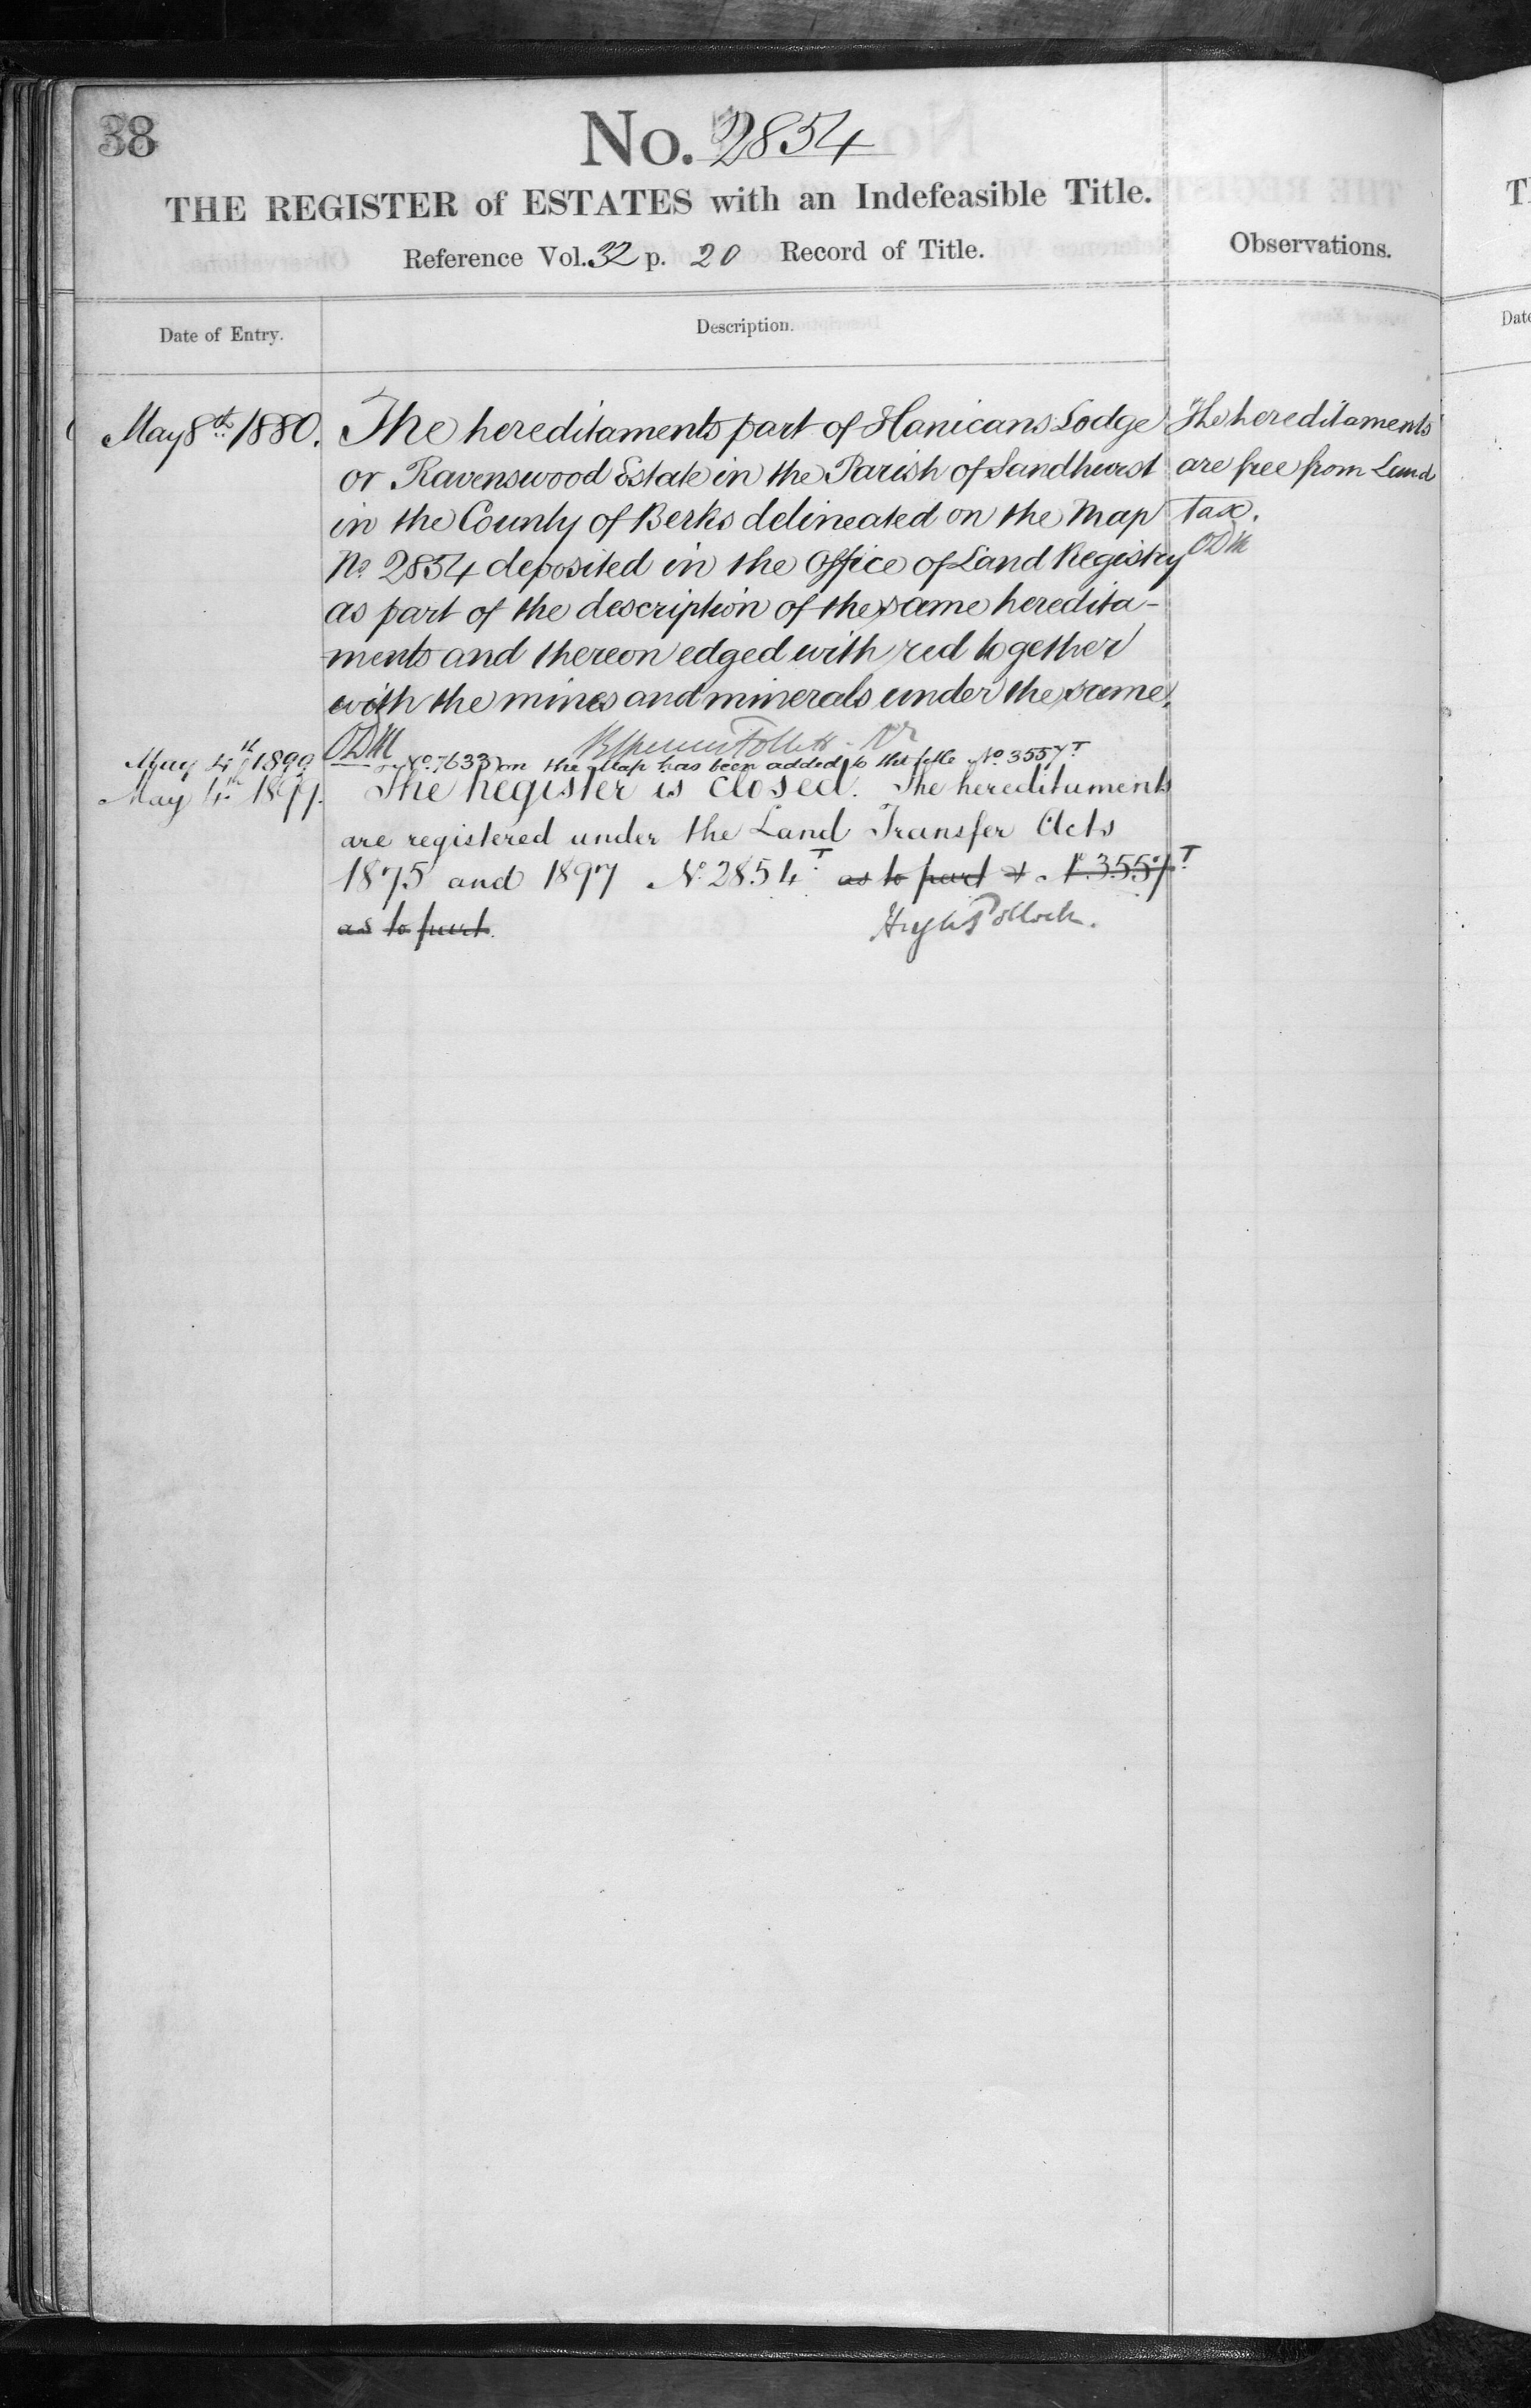 38
No. 2854
THE REGISTER of ESTATES with an Indefeasible Title.
Reference Vol. 32 p. 20 Record of Title.
Observations.
Date of Entry.
Description.
May 8th 1880.
The hereditaments part of Hanicans Lodge
or Ravenswood Estate in the Parish of Sandhurst
in the County of Berks delineated on the Map
No. 2854 deposited in the Office of Land Registry
as part of the description of the same heredita-
ments and thereon edged with red together
with the mines and minerals under the same.
The hereditaments
are free from Land
Tax.
ODM
ODM
B Spencer Follett
May 4th 1899
No. 7633 on the Map has been added to the title No. 3557T
May 4th 1899.
The Register is closed. The hereditaments
are registered under the Land Transfer Acts
1875 and 1897 No. 2854T as to part & No. 3557T
as to part.
Hugh Pollock.
T
Date